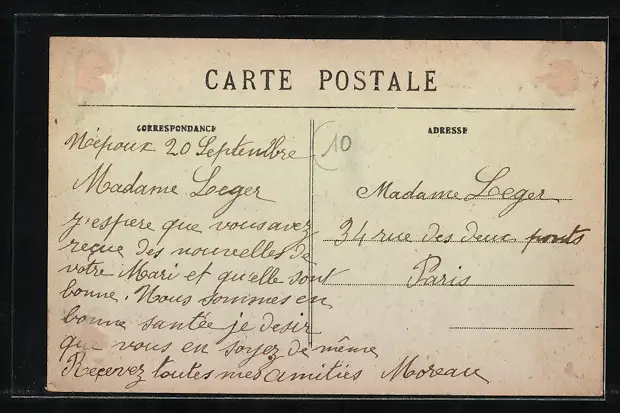 CARTE POSTALE
CORRESPONDANCE
Népoux 20 Septembre
Madame Leger
j'espere que vous avez
reçue des nouvelles de
votre Mari et qu'elle sont
bonne. Nous sommes en
bonne santée je desir
que vous en soyez de même
Recevez toutes mes amitiés Moreau
10
ADRESSE
Madame Leger
34 rue des deux ponts
Paris